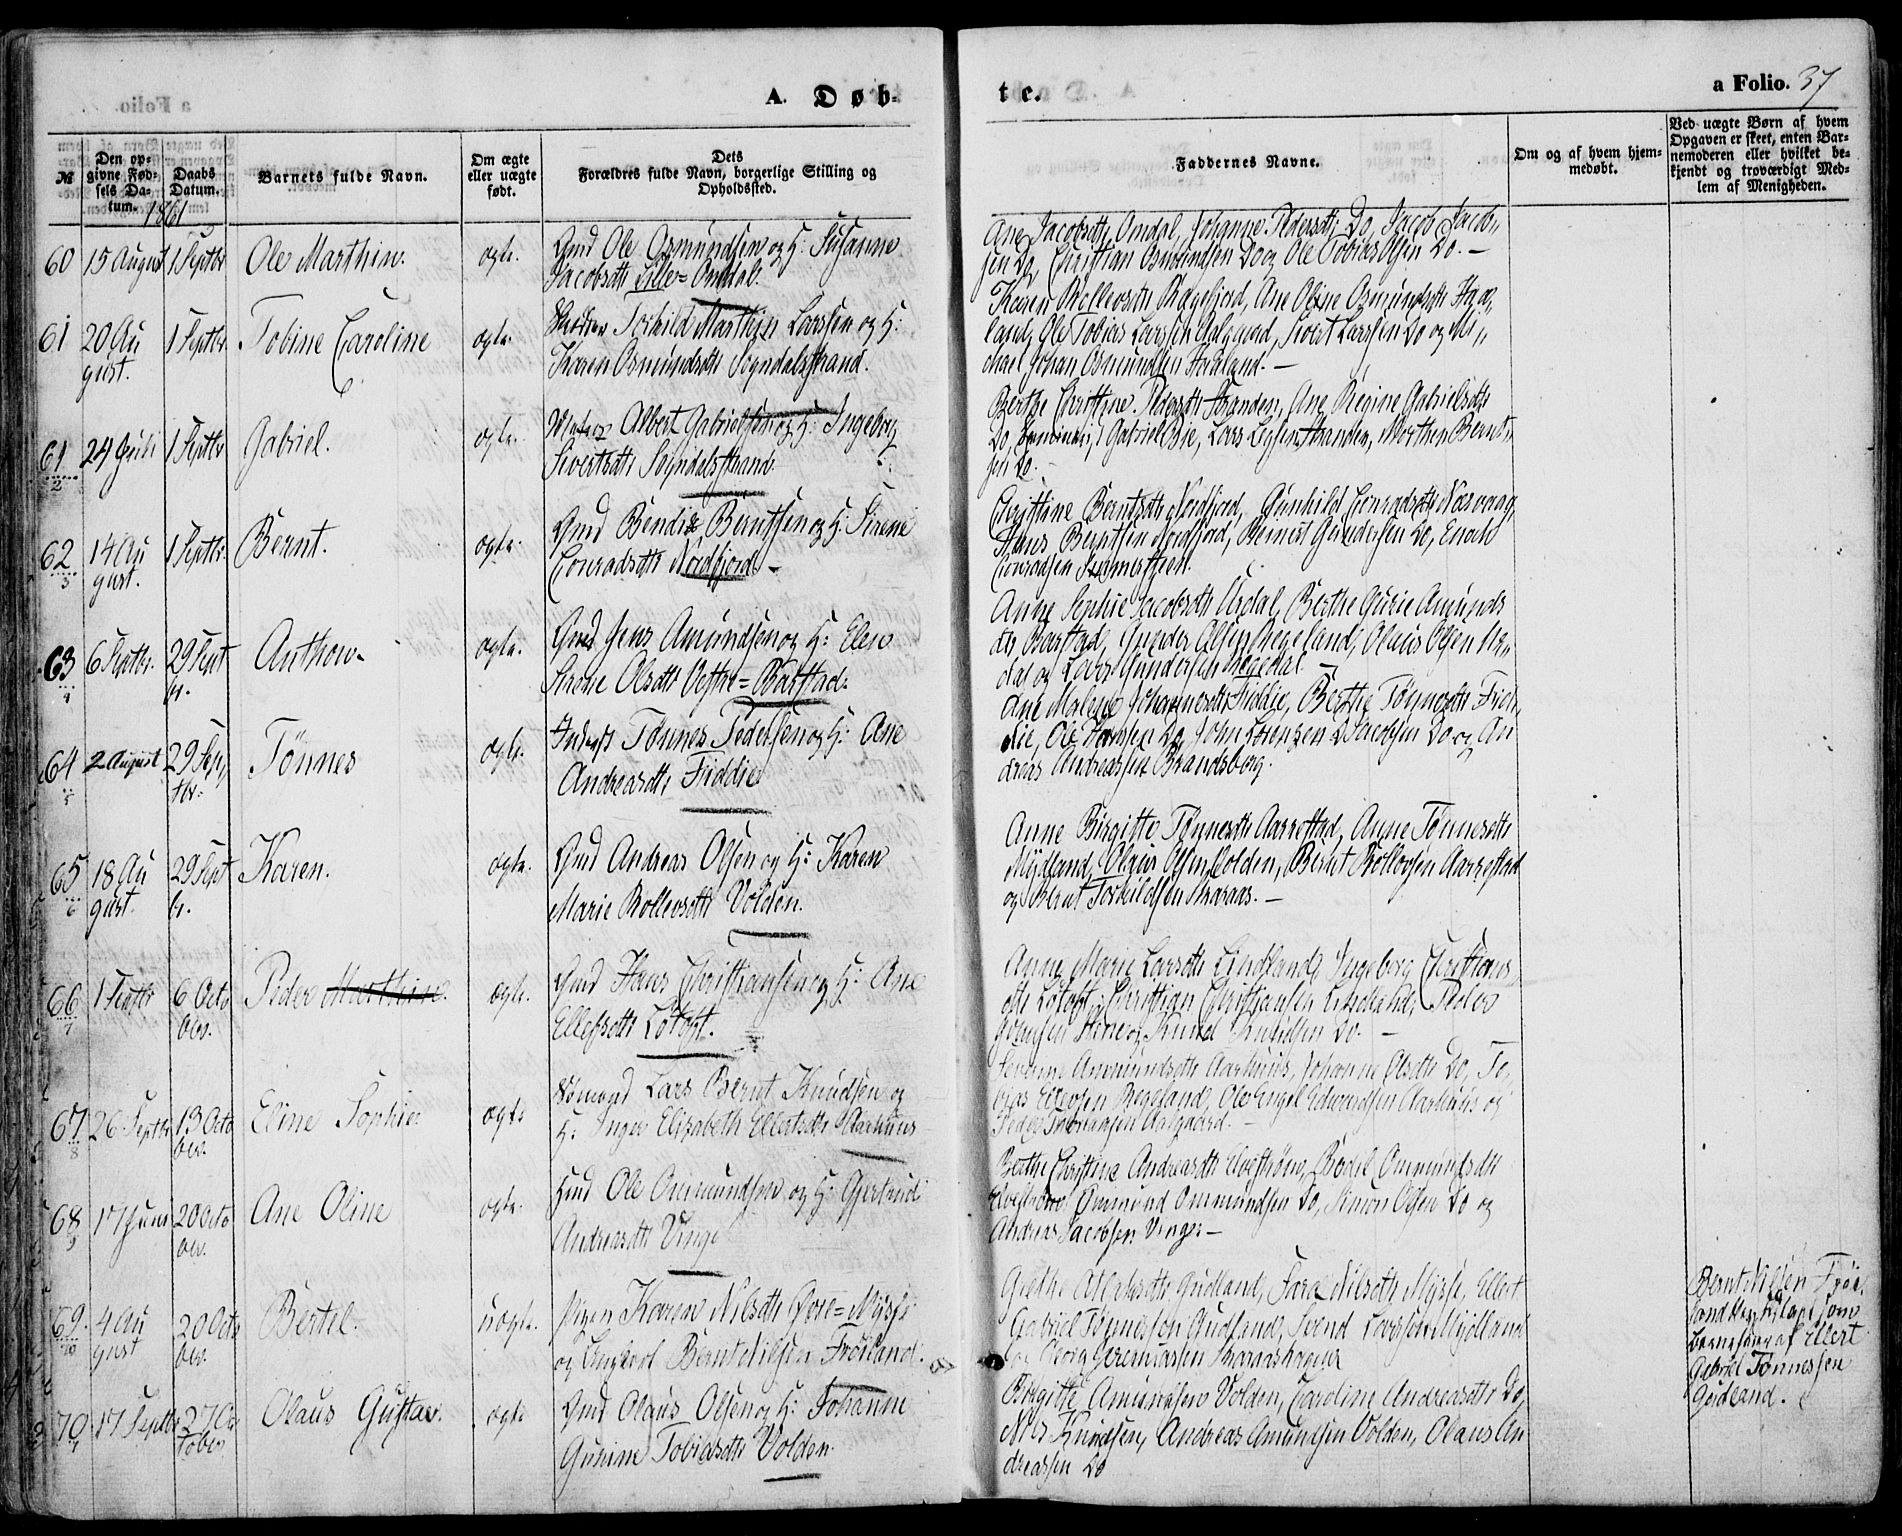 A. Døb-
te.
a Folio. 37
№
Den op-
givne Fød-
sels Da-
tum.
Daabs
Datum.
Barnets fulde Navn.
Om ægte
eller uægte
født.
Dets
Forældres fulde Navn, borgerlige Stilling og
Opholdssted.
Faddernes Navne.
Om og af hvem hjem-
medøbt.
Ved uægte Børn af hvem
Opgaven er skeet, enten Bar-
nemoderen eller hvilket be-
kjendt og troværdigt Med-
lem af Menigheden.
1861
60 15 August 1 Septbr Ole Marthin. ægte. Gmd Ole Osmundsen og H: Susanne
Jacobsdtr Lille=Omdal.
Ane Jacobsdtr Omdal, Johanne Pedersdtr Do, Jacob Jacob-
sen Do, Christian Osmundsen Do og Ole Tobias Olsen Do. —
61 20 Au
gust. 1 Septbr. Tobine Caroline ægte. Torkild Marthin Larssen og H:
Karen Osmundsdtr Sogndalsstrand.
Karen Rollevsdtr Rægefjord, Ane Oline Osmundsdtr Haa-
land, Ole Tobias Larssen Aalgaard, Sivert Larssen Do og Mi-
chael Johan Osmundsen Haaland. —
61 24 Juli 1 Septbr Gabriel. ægte. Albert Gabrielsen og H: Ingeborg
2
Sivertsdtr Sogndalsstrand
Berthe Christine Pedersdtr Stranden, Ane Regine Gabrielsdtr
Do, Gabriel Bie, Lars Stranden, Morthen Bernt-
sen Do.
62 14 Au
3 gust. 1 Septbr. Bernt. ægte. Gmd Bendix Berntsen og H: Sirene
Conradsdtr Nordfjord —
Christine Berntsdtr Nordfjord, Gunhild Conradsdtr
Hans Berntsen Nordfjord, Gundersen Do, Enoch
Conradsen
63 6 Septbr. 29 Sept
4 br. Anthon. ægte. Gmd Jens Amundsen og H: Elen
Sirene Olsdtr Vestre=Barstad.
Anne Sophie Jacobsdtr Urdal, Berthe Gurie Amunds
dtr Barstad, Gunder Olsen Regeland, Olaus Olsen Ur-
dal og Lars Gundersen
64 2 August 29 Sep,
5 tbr: Tønnes ægte. Tønnes Pedersen og H: Ane
Andreasdtr Fiddie
Ane Malene Johannesdtr Fiddie, Berthe Tønnesdtr Fid-
die, Ole Hansen Do, John Lorenzen Jacobsen Do og An
dreas Andreassen Brandsberg.
65 18 Au
6 gust. 29 Sept
br. Karen. ægte. Gmd Andreas Olsen og H: Karen
Marie Rollevsdtr Volden.
Anne Birgitte Tønnesdtr Aarrestad, Anne Tønnesdtr
Mydland, Olaus Olsen Volden, Bernt Rollevsen Aarrestad
og Bernt Torkildsen Skaraas. —
66 1 Septbr 6 Octo
7 ber. Peder Marthin. ægte. Gmd Hans Christiansen og H: Ane
Ellefsdtr Løtoft.
Anne Marie Larsdtr Lindland, Ingeborg Christians
dtr Løtoft, Christian Christiansen Lindland, Peder
og Knud Knudsen Do. —
67 26 Septbr 13 Octo
8 ber. Eline Sophie. ægte Lars Bernt Knudsen og
H: Inger Elizabeth Ellertsdtr Aarhuus
Severine Ammundsdtr Aarhuus, Johanne Olsdtr Do, To-
bias Regeland, Ole Engel Edwardsen Aarhuus og
Peder Aalgaard. —
68 17 Juni 20 Octo
9 ber. Ane Oline ægte. Ole Ommundsen og H: Gjertrud
Andreasdtr Vinge
Berthe Christine Andreasdtr Elvestrøm, Bodel Ommundsdtr
Ommund Ommundsen Do, Simon Olsen Do og
Andreas Jacobsen Vinge. —
69. 4 Au
10 gust 20 Octo
ber. Bertel. uægte. Pigen Karen Nilsdtr Øvre=Mysse
og Ungkarl Bernt Nilsen Frøiland.
Grethe Gudland, Sara Nilsdtr Mysse, Ellert
Gabriel Tønnessen Gudland, Svend Larssen Mydland
og Georg Jeremiassen
Bernt Nilsen Frøi-
land som
barnefader af Ellert
Gabriel Tønnessen
Gudland.
70 17 Septbr 27 Oc
tober Olaus Gustav. ægte Gmd Olaus Olsen og H: Johanne
Gurine Tobiasdtr Volden.
Birgitte Amundsen Volden, Caroline Andreasdtr Do,
Nils Knudsen, Andreas Amundsen Volden, Olaus An
dreassen Do